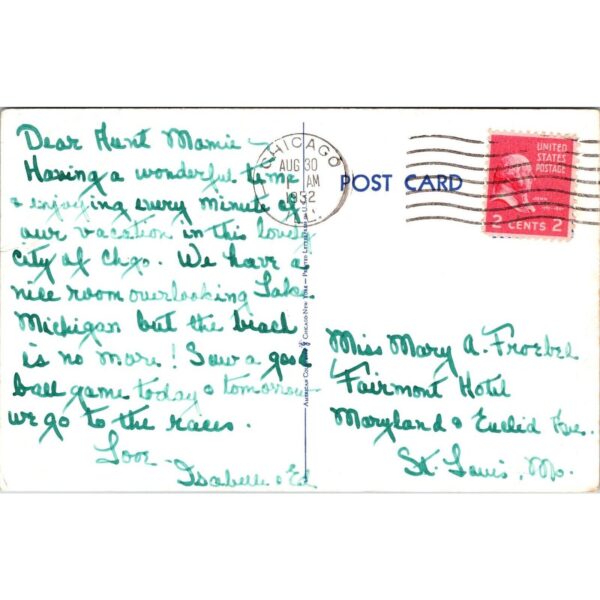 Dear Aunt Mamie –
Having a wonderful time
& enjoying every minute of
our vacation in this lovely
city of Chgo. We have a
nice room overlooking Lake
Michigan but the beach
is no more! Saw a good
ball game today & tomorrow
we go to the races.
Love –
Isabelle & Ed
CHICAGO
AUG 30
1 AM
1952
ILL.
POST CARD
UNITED
STATES
POSTAGE
JOHN
2 CENTS 2
Miss Mary A. Froebel
Fairmont Hotel
Maryland & Euclid Ave.
St. Louis, Mo.